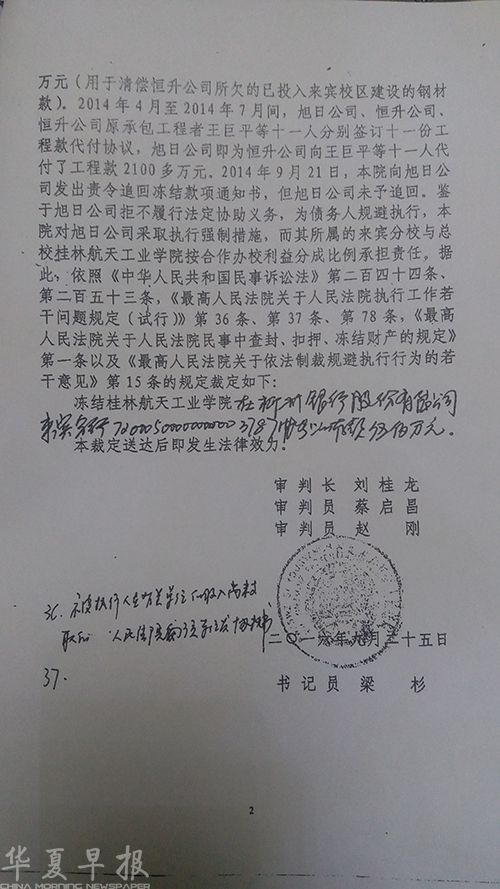 万元（用于清偿恒升公司所欠的已投入来宾校区建设的钢材
款）。2014年4月至2014年7月间，旭日公司、恒升公司、
恒升公司原承包工程者王巨平等十一人分别签订十一份工
程款代付协议，旭日公司即为恒升公司向王巨平等十一人代
付了工程款2100多万元。2014年9月21日，本院向旭日公
司发出责令追回冻结款项通知书，但旭日公司未予追回。鉴
于旭日公司拒不履行法定协助义务，为债务人规避执行，本
院对旭日公司采取执行强制措施，而其所属的来宾分校与总
校桂林航天工业学院按合作办校利益分成比例承担责任。据
此，依照《中华人民共和国民事诉讼法》第二百四十四条、
第二百五十三条，《最高人民法院关于人民法院执行工作若
干问题规定（试行）》第36条、第37条、第78条，《最高
人民法院关于人民法院民事中查封、扣押、冻结财产的规定》
第一条以及《最高人民法院关于依法制裁规避执行行为的若
干意见》第15条的规定裁定如下：
冻结桂林航天工业学院在柳州银行股份有限公司
来宾分行 存款伍佰万元。
本裁定送达后即发生法律效力。
审判长 刘桂龙
审判员 蔡启昌
审判员 赵刚
36. 被执行人在有关单位的收入尚未
取的 人民法院 协
二〇一六年九月二十五日
37.
书记员 梁杉
2
华夏早报
CHINA MORNING NEWSPAPER